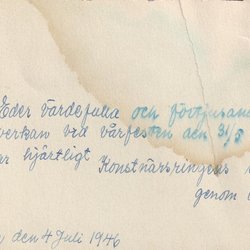 Eder värdefulla och förtjusand
verkan vid vårfesten den 31/5
ar hjärtligt Konstnärsringens
genom
den 4 Juli 1946